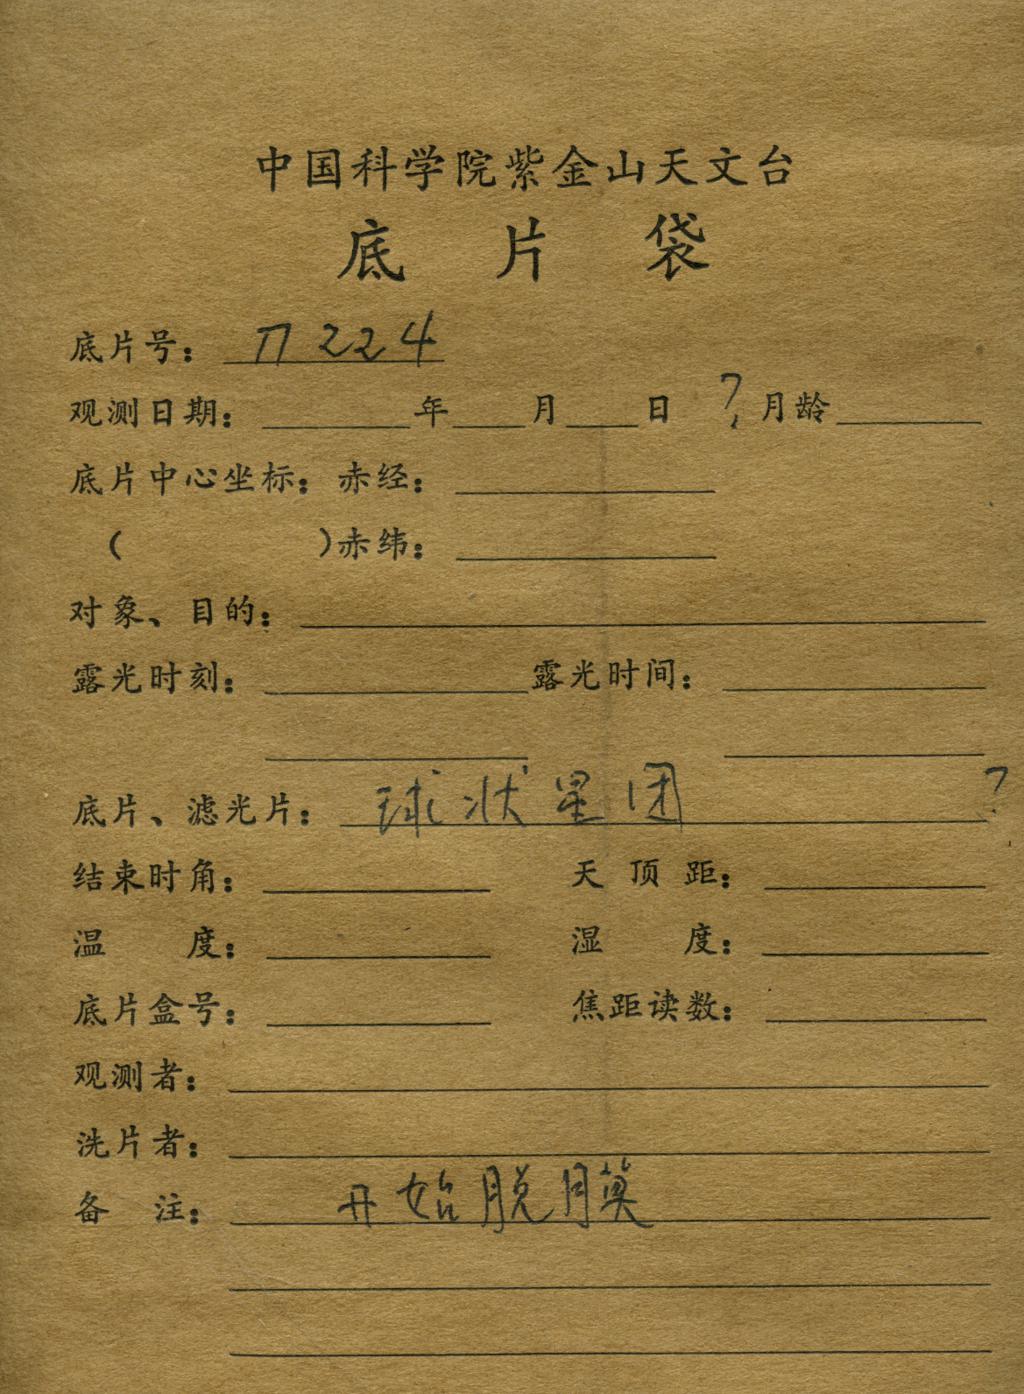 中国科学院紫金山天文台
底片袋
底片号： П224
观测日期： 年 月 日 ? 月龄
底片中心坐标：赤经：
( )赤纬：
对象、目的：
露光时刻： 露光时间：
底片、滤光片： 球状星团 ?
结束时角： 天顶距：
温度： 湿度：
底片盒号： 焦距读数：
观测者：
洗片者：
备注： 开始脱膜